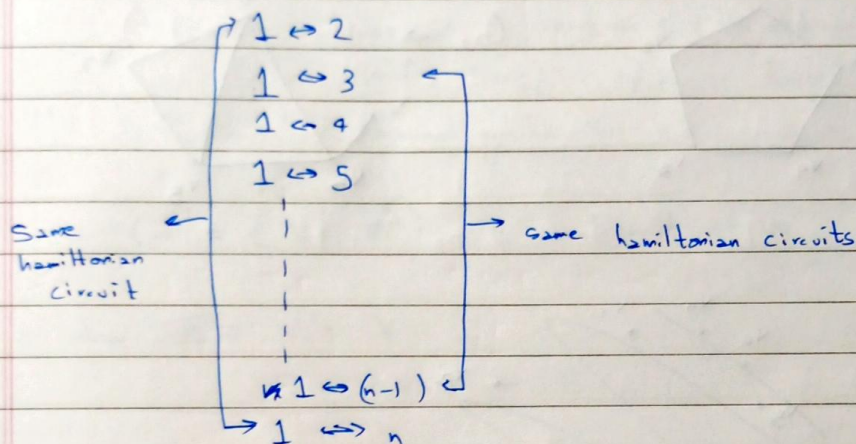 1 ↔ 2
1 ↔ 3
1 ↔ 4
1 ↔ 5
Same
hamiltonian
circuit
same hamiltonian circuits
1 ↔ (n-1)
1 ↔ n